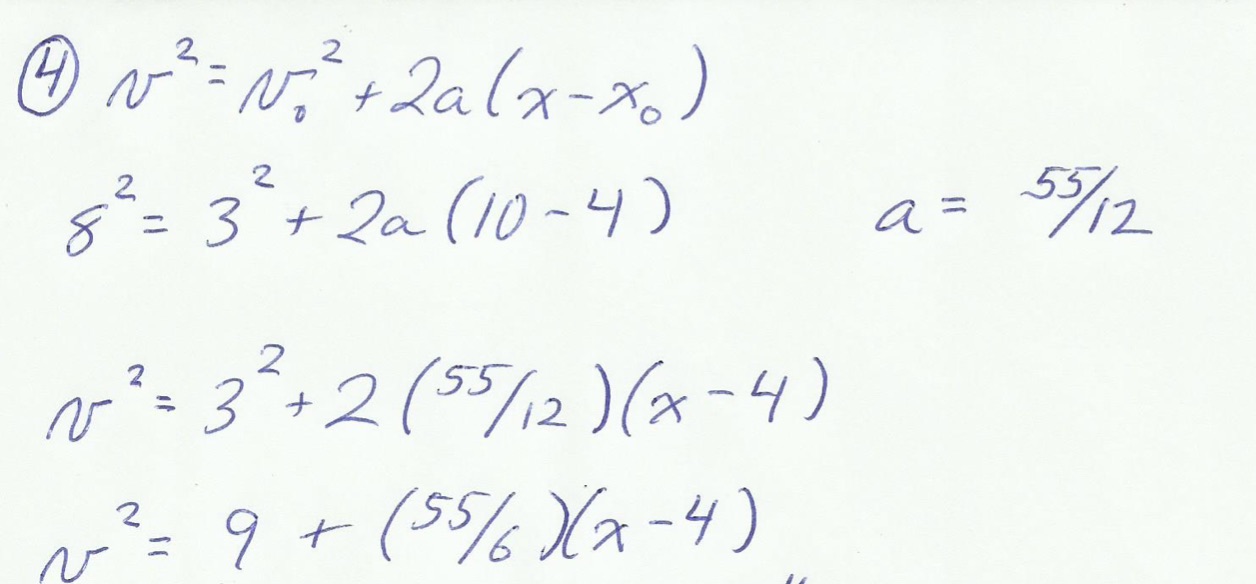 ④ v² = v₀² + 2a(x - x₀)
8² = 3² + 2a(10 - 4) a = 55/12
v² = 3² + 2(55/12)(x - 4)
v² = 9 + (55/6)(x - 4)